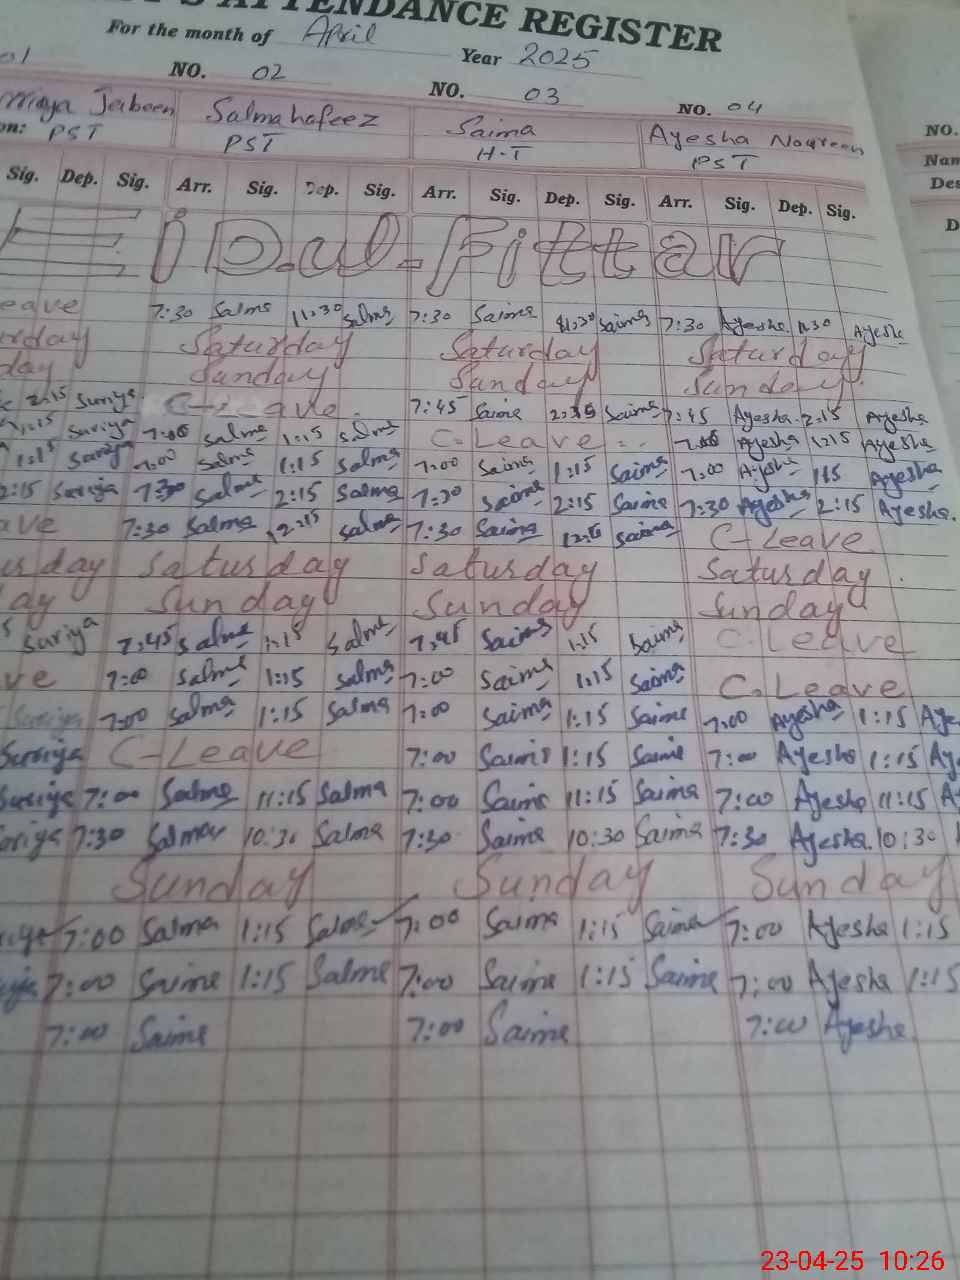 ATTENDANCE REGISTER
For the month of April Year 2025
NO. 02 NO. 03 NO. 04 NO.
Jabeen Salma hafeez Saima Ayesha Noureen Nam
on: PST PST H-T PST Des
Sig. Dep. Sig. Arr. Sig. Dep. Sig. Arr. Sig. Dep. Sig. Arr. Sig. Dep. Sig. D
Eid.ul.Fittar
eave 7:30 Salma 11:30 Salma 7:30 Saima 11:30 Saima 7:30 Ayesha 11:30 Ayesha
rday Saturday Saturday Saturday
day Sunday Sunday Sunday
2:15 Suriya C-Leave 7:45 Saima Saima 7:45 Ayesha 2:15 Ayesha
1:15 Suriya 7:00 Salma 1:15 Salma C-Leave 7:00 Ayesha 1:15 Ayesha
1:15 Suriya 7:00 Salma 1:15 Salma 7:00 Saima 1:15 Saima 7:00 Ayesha 115 Ayesha
2:15 Suriya 7:30 Salma 2:15 Salma 7:30 Saima 2:15 Saima 7:30 Ayesha 2:15 Ayesha.
ave 7:30 Salma 12:15 Salma 7:30 Saima Saima C-Leave
urday Saturday Saturday Saturday
ay Sunday Sunday Sunday
5 Suriya 7:45 Salma 1:15 Salma 7:45 Saima 1:15 Saima C.Leave
ve 7:00 Salma 1:15 Salma 7:00 Saima 1:15 Saima C.Leave
Suriya 7:00 Salma 1:15 Salma 7:00 Saima 1:15 Saima 7:00 Ayesha 1:15 Aye
Suriya C-Leave 7:00 Saima 1:15 Saima 7:00 Ayesha 1:15 Ay
Suriya 7:00 Salma 11:15 Salma 7:00 Saima 11:15 Saima 7:00 Ayesha 11:15 A
uriya 7:30 Salma 10:30 Salma 7:30 Saima 10:30 Saima 7:30 Ayesha 10:30
Sunday Sunday Sunday
7:00 Salma 1:15 Salma 7:00 Saima 1:15 Saima 7:00 Ayesha 1:15
7:00 Saima 1:15 Salma 7:00 Saima 1:15 Saima 7:00 Ayesha 1:15
7:00 Saima 7:00 Saima 7:00 Ayesha
23-04-25 10:26